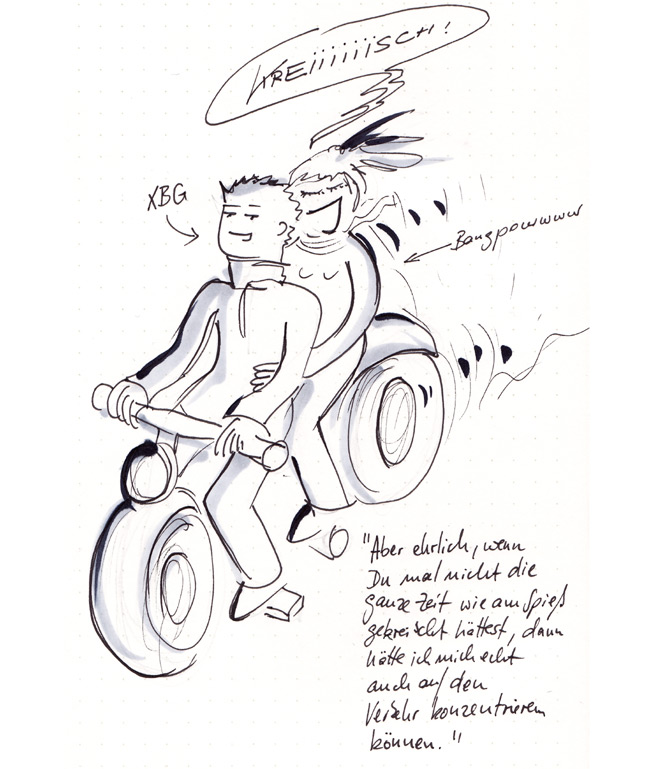 KREiiiiiiSCH!
XBG
Bangpowwwww
"Aber ehrlich, wenn
Du mal nicht die
ganze Zeit wie am Spieß
gekreischt hättest, dann
hätte ich mich echt
auch auf den
Verkehr konzentrieren
können."